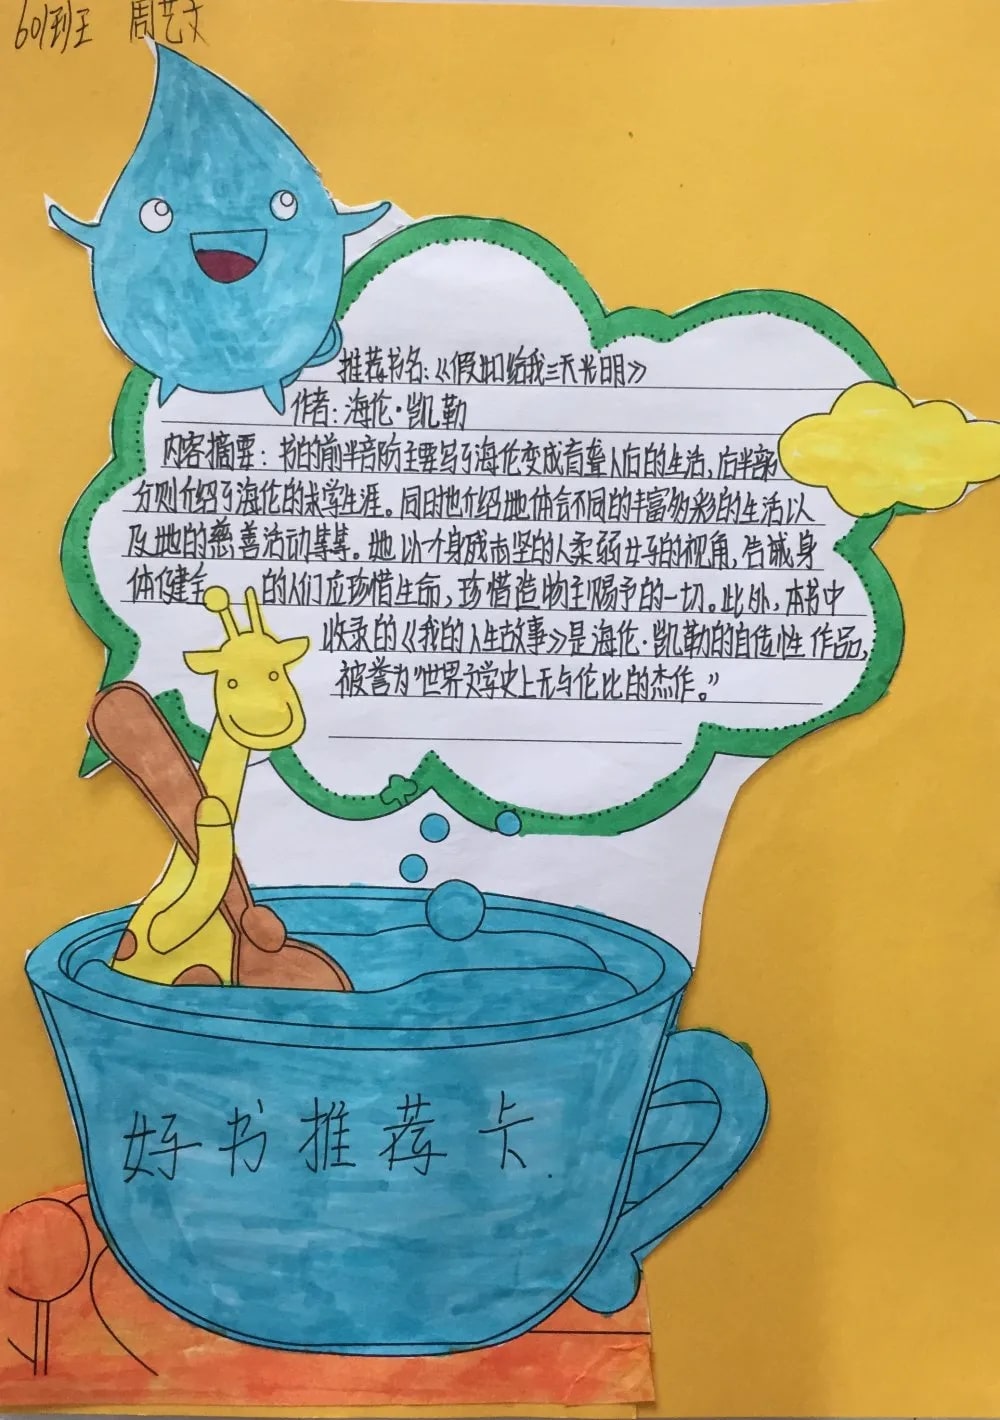 601班 周艺文
推荐书名:《假如给我三天光明》
作者:海伦·凯勒
内容摘要:书的前半部分主要写了海伦变成盲聋人后的生活,后半部
分则介绍了海伦的求学生涯。同时也介绍她体会不同的丰富多彩的生活以
及她的慈善活动等等。她以一个身残志坚的人柔弱女子的视角,告诫身
体健全 的人们应珍惜生命,珍惜造物主赐予的一切。此外,本书中
收录的《我的人生故事》是海伦·凯勒的自传性作品,
被誉为“世界文学史上无与伦比的杰作。”
好书推荐卡